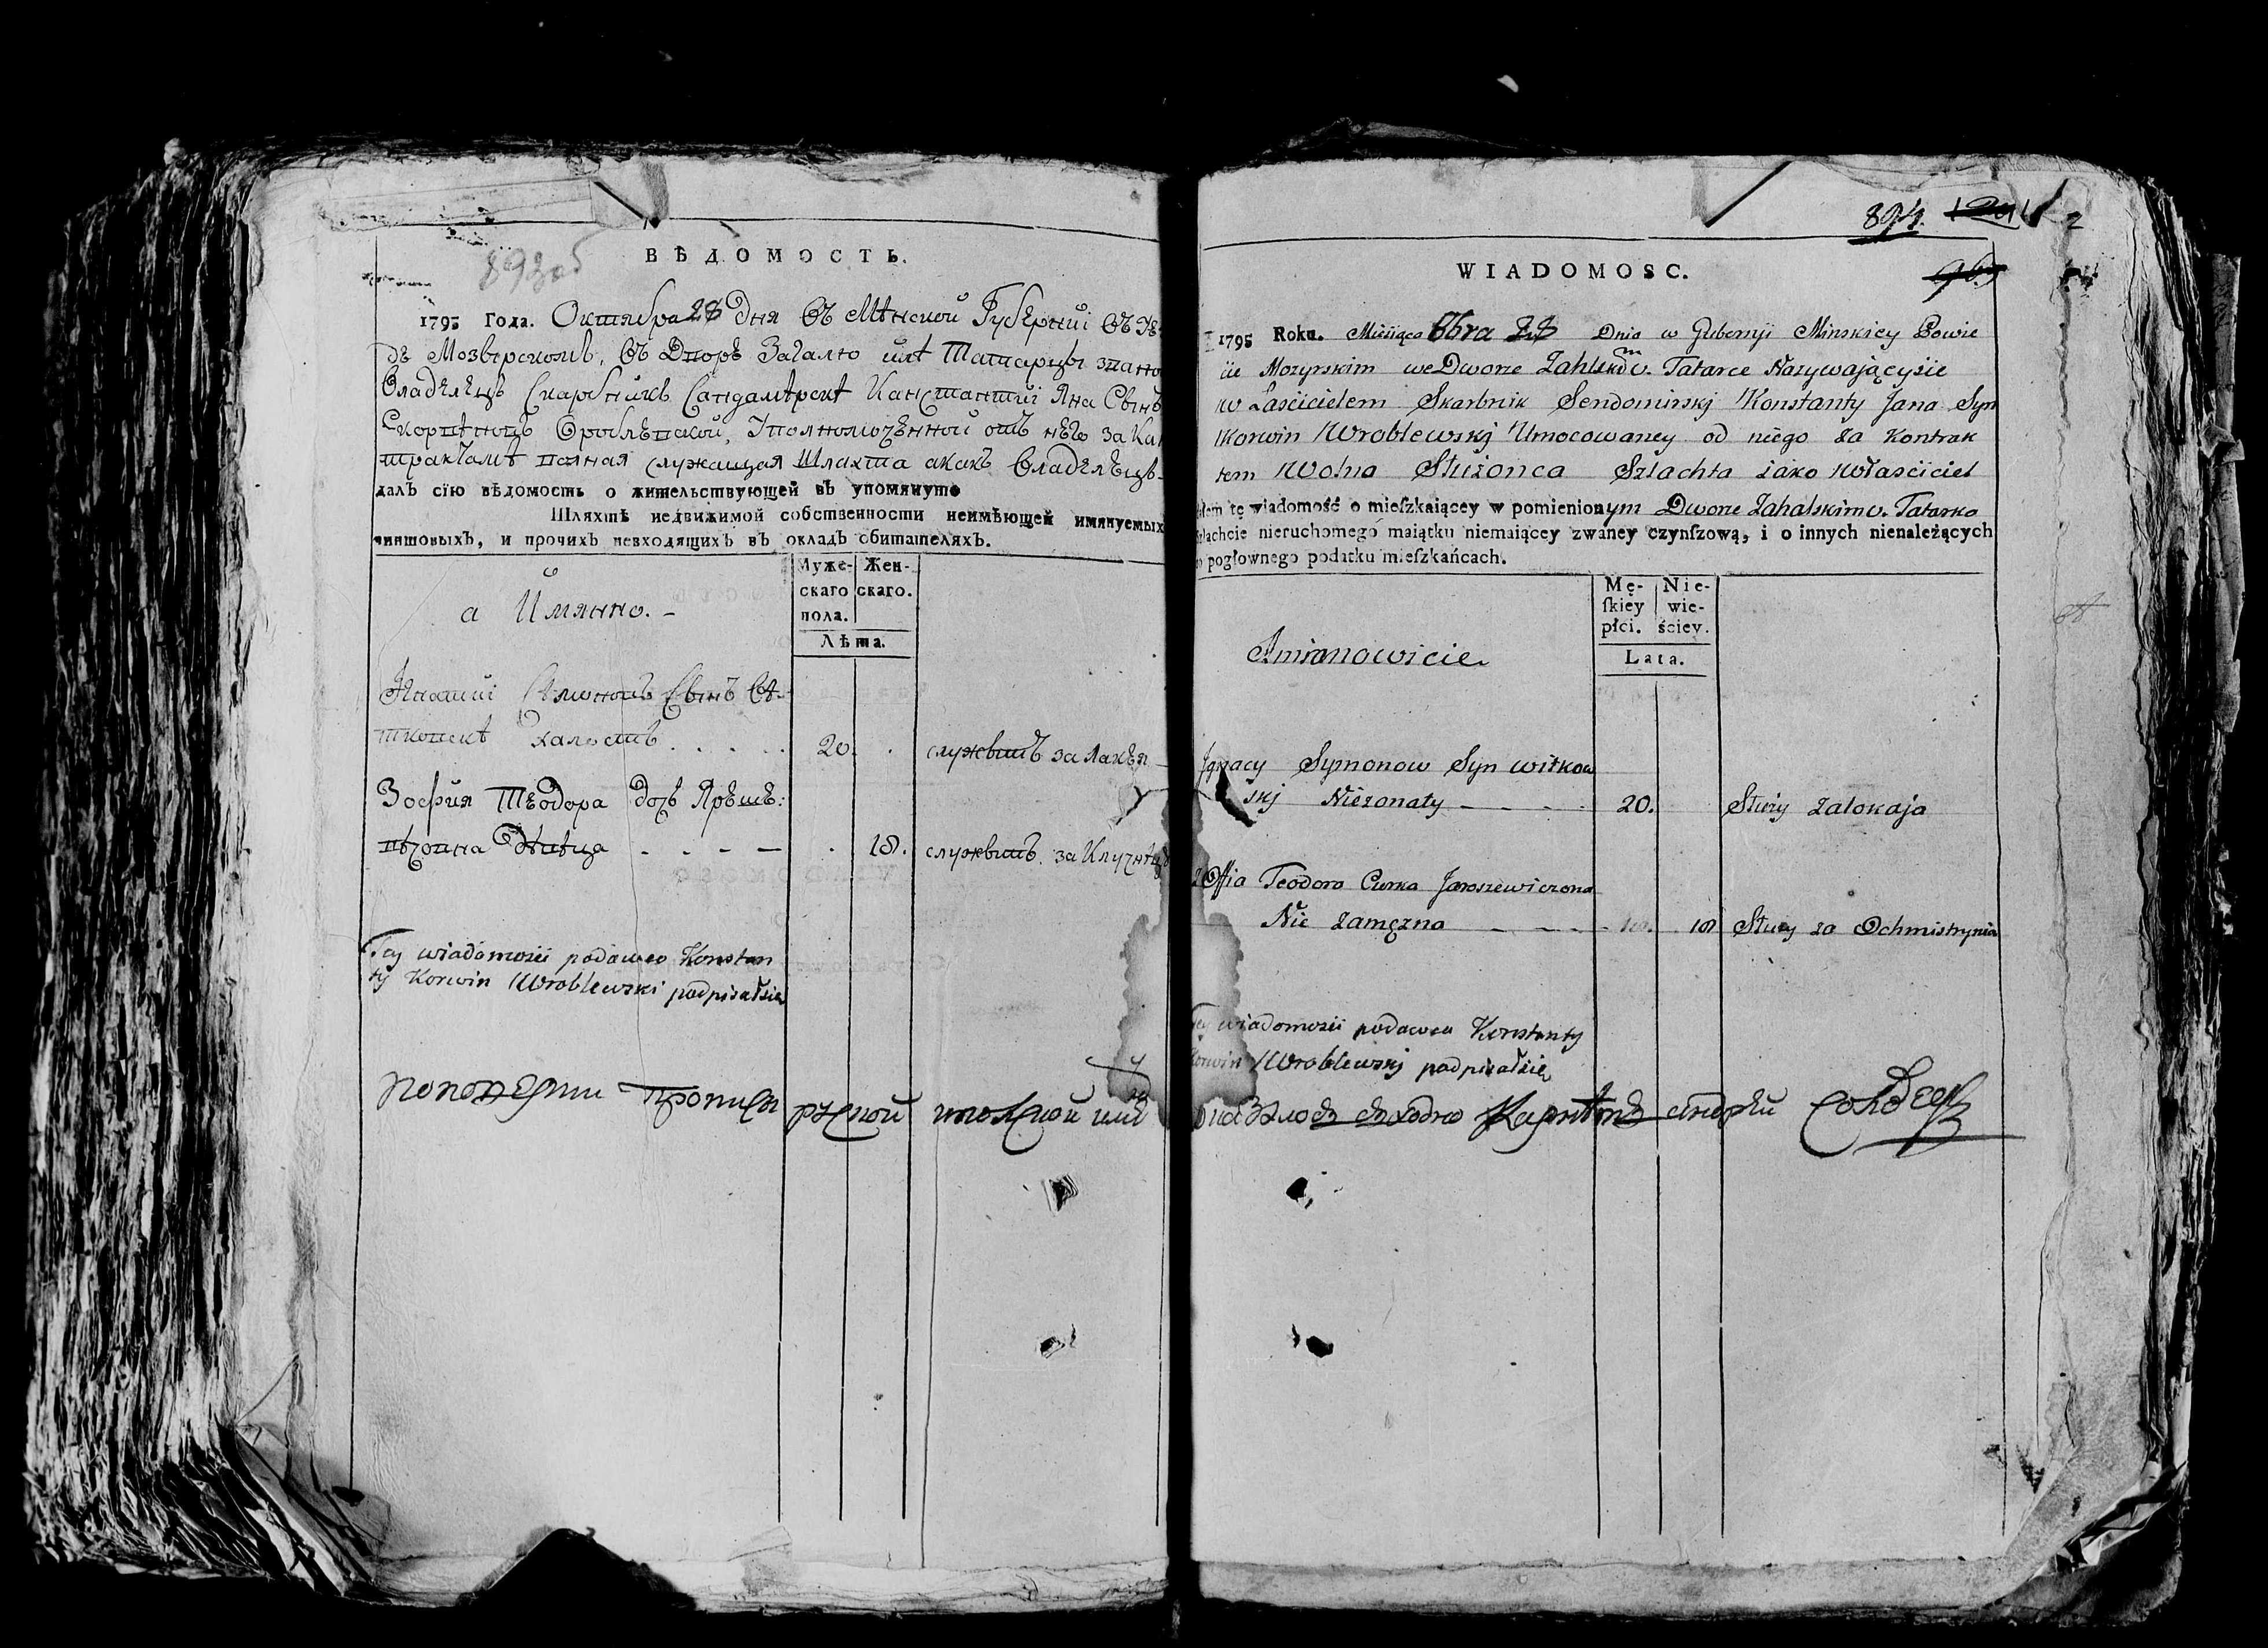 893об
ВѢДОМОСТЬ.
1795 Года. Октября 28 дня въ Мѣнской Губерніи въ Уѣ-
дѣ Мозырскомъ, въ Дворѣ Загалю илѣ Татарцы зпано
Владѣлецъ Скарбникъ Сандамѣрскѣ Канстантій Яна Свінъ
Корпѣномъ Вроблѣпской, Уполномоченной отъ нѣго за Кан
трактамѣ полная служащая Шляхта акакъ Владѣлецъ
далъ сїю вѣдомость о жительствующей въ упомянуто
Шляхтѣ недвижимой собственности неимѣющей имянуемыхъ
чиншовыхъ, и прочихъ невходящихъ въ окладъ обитателяхъ.
а Имянно. –
Муже-скаго пола.
Жен-скаго.
Лѣта.
Игнатій Сымоновъ Свінъ Вѣ-
ткопскѣ Халостъ . . . . . 20. служвітъ за Лакѣя
Зофия Тѣодора дочь Ярѣшѣ:
пѣчопна Дѣпѣца - - - - . 18. служвітъ за Ключнѣцу
Tey wiadomosii podawca Konstan
ty Korwin Wroblewski podpisałsię
894.
2
WIADOMOSC.
1795 Roku. Miesiąca 8bra 28 Dnia w Gubernji Minskiey Powie
cie Mozyrskim we Dworze Zahalskim v. Tatarce Nazywającysie
Właścicielem Skarbnik Sendomirskj Konstanty Jana Syn
Korwin Wroblewskj Umocowaney od niego za Kontrak
tem Wolna Służonca Szlachta iako własciciel
ałem tę wiadomość o mieſzkaiącey w pomienionym Dworze Zahalskim v. Tatarko
szlachcie nieruchomego maiątku niemaiącey zwaney czynſzową, i o innych nienależących
do pogłownego podatku mieſzkańcach.
Amianowicie
Mę-ſkiey płci.
Nie-wie-ściey.
Lata.
Jgnacy Symonow Syn witkow
skj Nieżonaty - - - - 20. Służy za lokaja
Zoffia Teodora Curka Jaroszewiczona
Nie zamęzna - - - - 18 Służy za Ochmistrynią
Tey wiadomosii podawca Konstanty
Korwin Wroblewskj podpisałsię